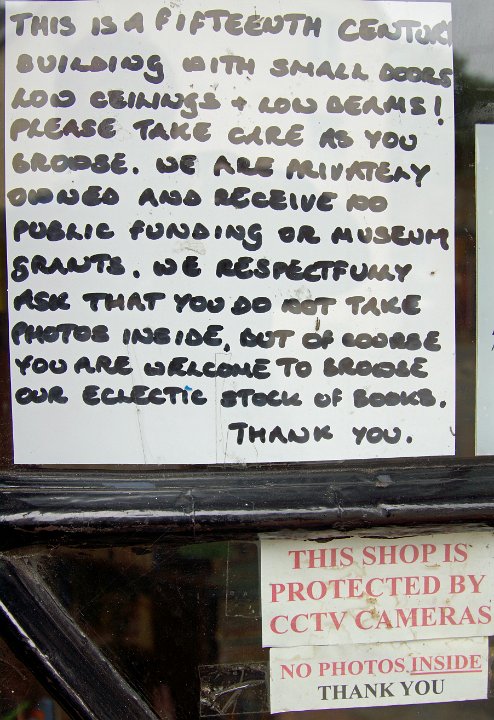 THIS IS A FIFTEENTH CENTURY
BUILDING WITH SMALL DOORS
LOW CEILINGS + LOW BEAMS!
PLEASE TAKE CARE AS YOU
BROWSE. WE ARE PRIVATELY
OWNED AND RECEIVE NO
PUBLIC FUNDING OR MUSEUM
GRANTS. WE RESPECTFULLY
ASK THAT YOU DO NOT TAKE
PHOTOS INSIDE, BUT OF COURSE
YOU ARE WELCOME TO BROWSE
OUR ECLECTIC STOCK OF BOOKS.
THANK YOU.
THIS SHOP IS
PROTECTED BY
CCTV CAMERAS
NO PHOTOS INSIDE
THANK YOU